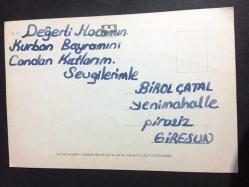 Değerli Hocamın
Kurban Bayramını
Candan Kutlarım.
Sevgilerimle
BİROL ÇATAL
yenimahalle
piraziz
GİRESUN